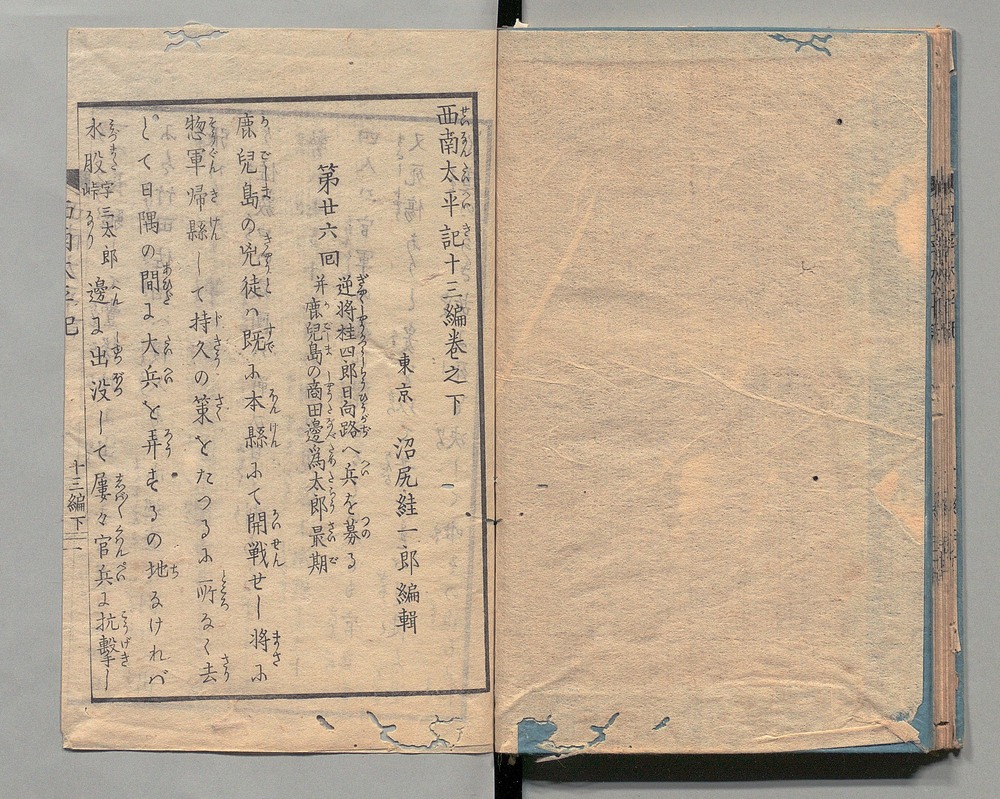 西南太平記十三編巻之下
東京 沼尻絓一郎編輯
第廿六回
逆将桂四郎日向路へ兵を募る
并鹿兒島の商田邊爲太郎最期
鹿兒島の兇徒ハ既に本縣にて開戦せし将に
惣軍帰縣して持久の策をたつるに所なく去
とて日隅の間に大兵を弄するの地なけれバ
水股峠字三太郎なり邊に出没して屢々官兵に抗撃し
十三編下 一